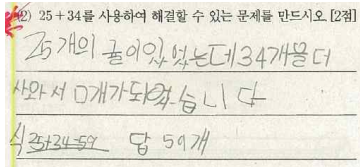 (2) 25+34를 사용하여 해결할 수 있는 문제를 만드시오 [2점]
25개의 귤이있었는데 34개를 더
사와서 □개가되었습니다
식 25+34=59 답 59개